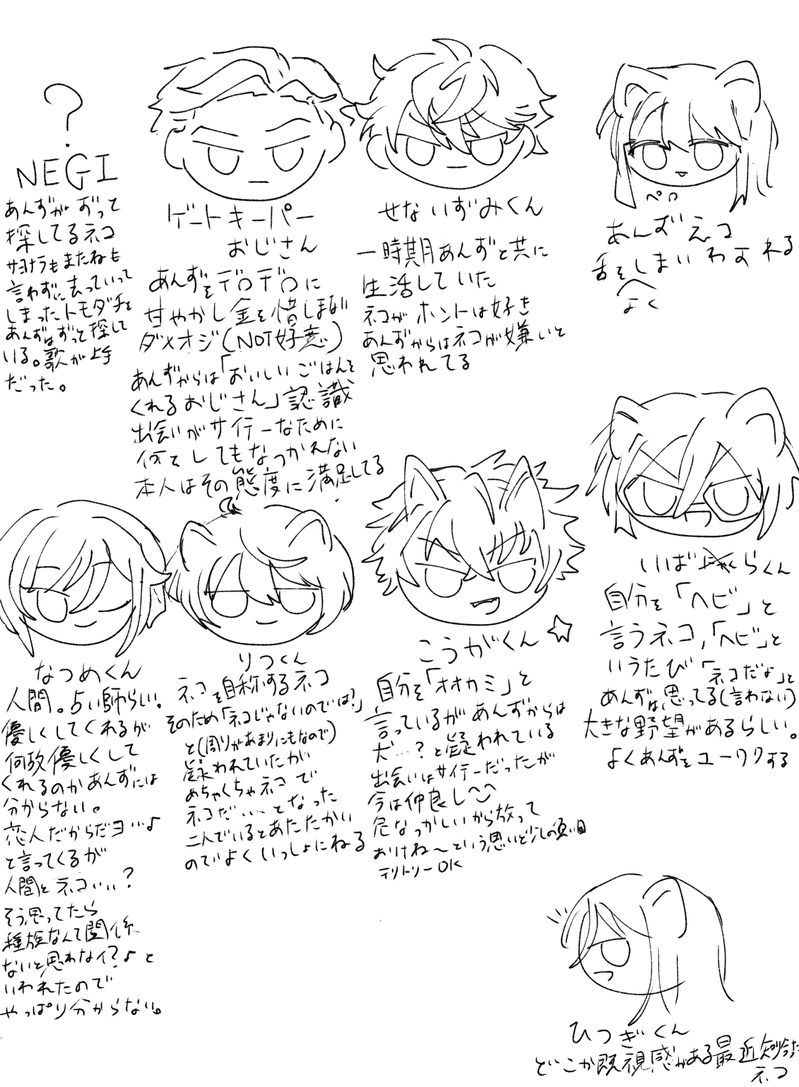 ?
NEGI
あんずがずっと
探してるネコ
サヨナラもまたねも
言わずに去っていって
しまったトモダチを
あんずはずっと探して
いる。歌が上手
だった。
ゲートキーパー
おじさん
あんずをデロデロに
甘やかし金を惜しまな
ダメオジ(NOT好意)
あんずからは「おいしいごはんを
くれるおじさん」認識
出会いがサイテーなために
何をしてもなつかれない
本人はその態度に満足してる
せないずみくん
一時期あんずと共に
生活していた
ネコがホントは好き
あんずからはネコが嫌いと
思われてる
ペロ
あんずネコ
舌をしまいわすれる
よく
なつめくん
人間。占い師らしい。
優しくしてくれるが
何故優しくして
くれるのかあんずには
分からない。
恋人だからだヨ…♪
と言ってくるが
人間とネコ…?
そう思ってたら
種族なんて関係
ないと思わなイ?♪と
いわれたので
やっぱり分からない。
りつくん
ネコを自称するネコ
そのため「ネコじゃないのでは?」
と(周りがあまりにもなので)
疑われていたが
めちゃくちゃネコで
ネコだ…となった
二人でいるとあたたかい
のでよくいっしょにねる
こうがくん
自分を「オオカミ」と
言っているがあんずからは
犬…?と疑われている
出会いはサイテーだったが
今は仲良し
危なっかしいから放って
おけね〜という思いど少しの負い目
テリトリーOK
いばらくん
自分を「ヘビ」と
言うネコ,「ヘビ」と
いうたび「ネコだよ」と
あんずは思ってる(言わない)
大きな野望があるらしい。
よくあんずをユーワクする
ひつぎくん
どこか既視感がある最近知り合った
ネコ